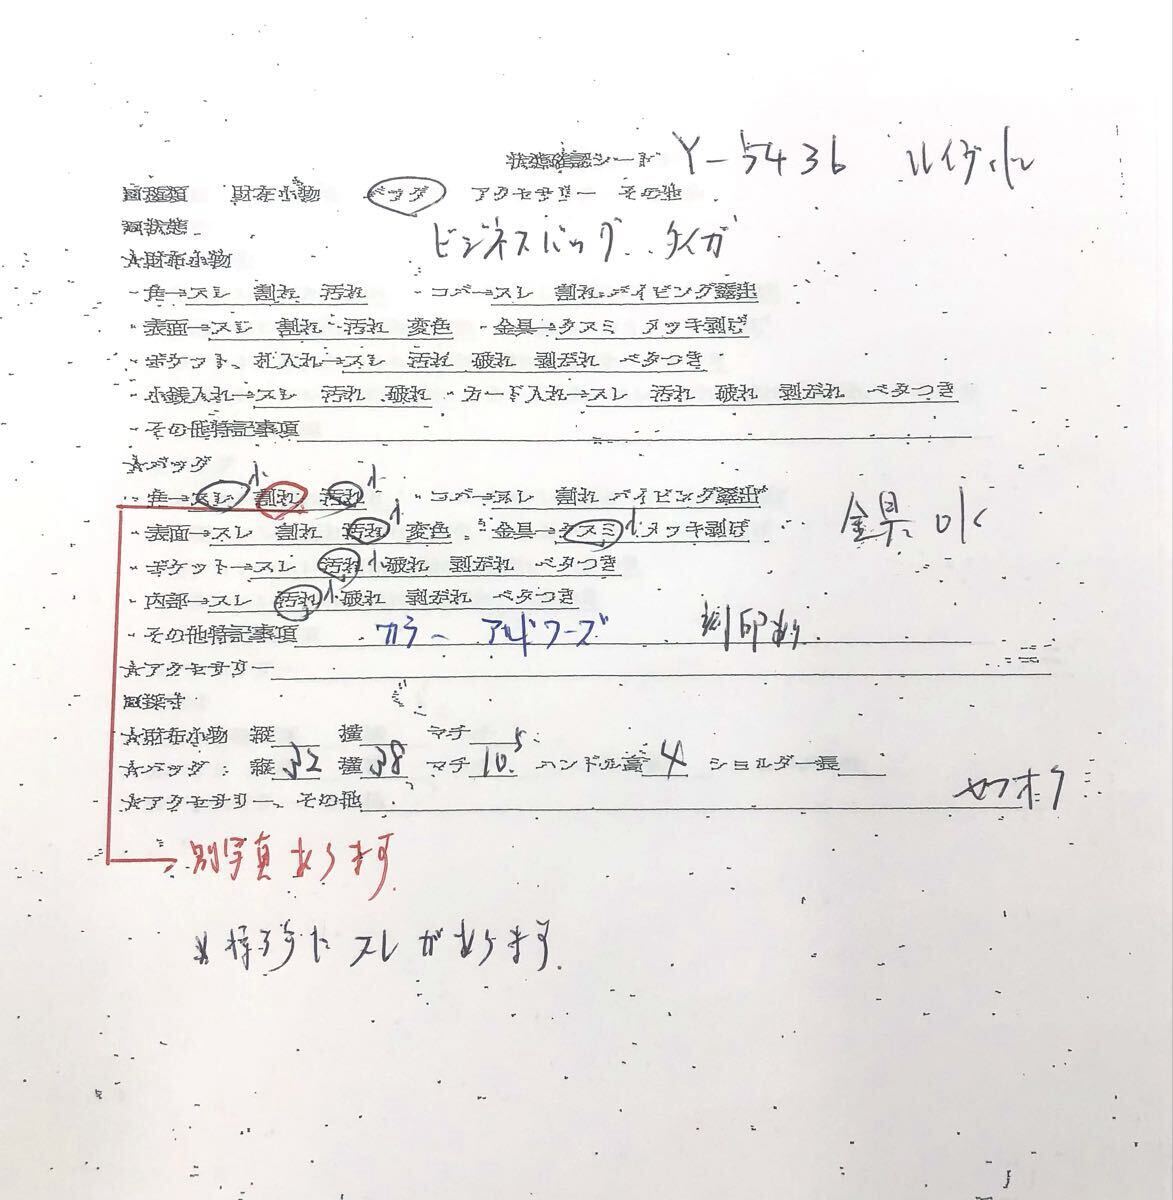 状態確認シート Y-5436 ルイヴィトン
□種類 財布小物 バッグ アクセサリー その他
□状態 ビジネスバッグ タイガ
★財布小物
・角→スレ 割れ 汚れ ・コバ→スレ 割れ パイピング露出
・表面→スレ 割れ 汚れ 変色 ・金具→クスミ メッキ剥げ
・ポケット、札入れ→スレ 汚れ 破れ 剥がれ ベタつき
・小銭入れ→スレ 汚れ 破れ ・カード入れ→スレ 汚れ 破れ 剥がれ ベタつき
・その他特記事項
★バッグ
・角→スレ小 割れ 汚れ小 ・コバ→スレ 割れ パイピング露出
・表面→スレ 割れ 汚れ小 変色 ・金具→クスミ小 メッキ剥げ 金具 OK
・ポケット→スレ 汚れ小 破れ 剥がれ ベタつき
・内部→スレ 汚れ小 破れ 剥がれ ベタつき
・その他特記事項 カラー アルドワーズ 刻印あり
★アクセサリー
□採寸
★財布小物 縦 横 マチ
★バッグ: 縦 32 横 38 マチ 10.5 ハンドル高 4 ショルダー長
★アクセサリー、その他 ヤフオク
別写真あります
持ち手にスレがあります